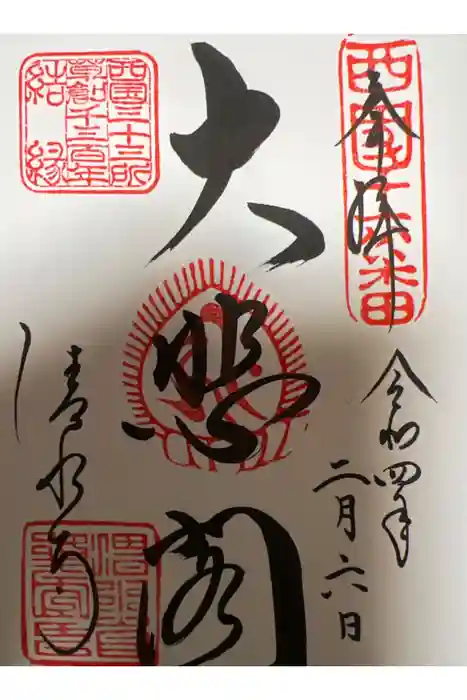 西国十六番
奉拝
令和四年
二月六日
大悲閣
西国三十三所
草創千三百年
結縁
清水寺